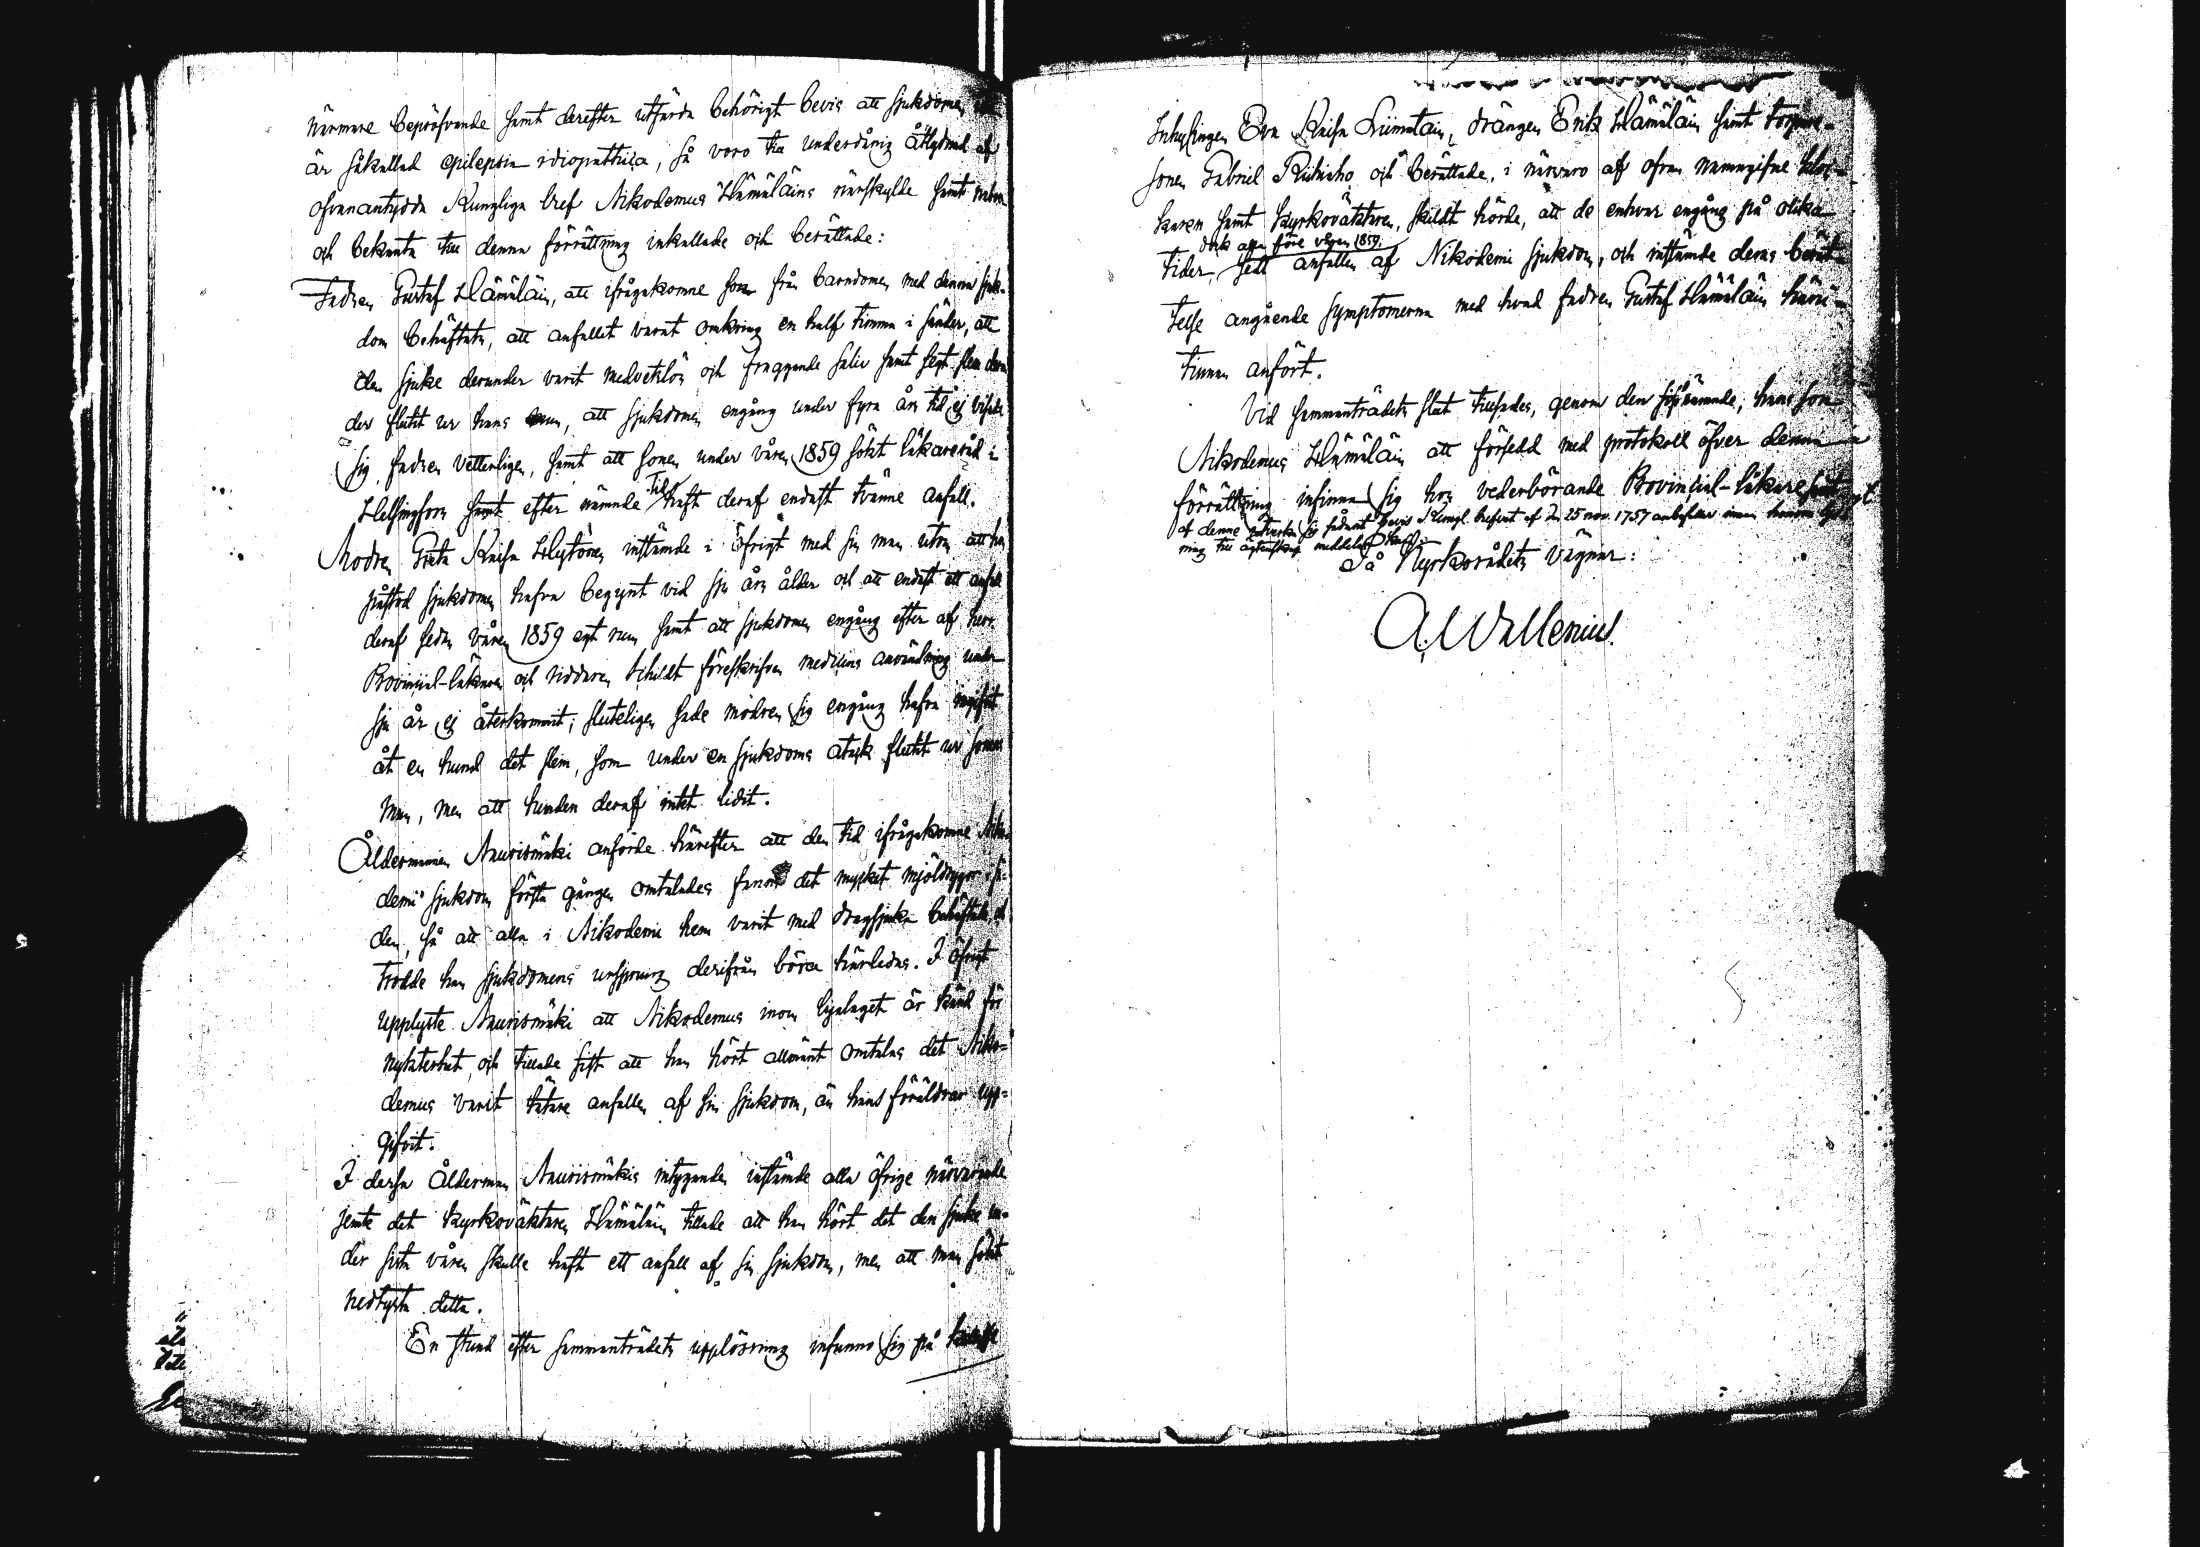 närmare bepröfvande samt derefter utfärda behörigt bevis att sjukdomen
är såkallad epilepsia idiopathica, så voro till underdånig åtlydnad af
ofvanantydda Kungliga bref Nikodemus Hämäläins närskylde samt
och bekanta till denna förrättning inkallade och berättade:
Fadren Gustaf Hämäläin, att ifrågakomne son från barndomen med denna sjuk-
dom behäftats, att anfallet varat omkring en half timma i sänder, att
den sjuke derunder varit medvetslös och fraggande saliv samt segt slem derun
der flutit ur hans mun, att sjukdomen engång under fyra års tid ej visat
sig fadren vetterligen, samt att sonen under våren 1859 sökt läkareråd i
Helsingfors samt efter nämnde tid haft deraf endast tvänne anfall.
Modren Greta Kaisa instämde i öfrigt med sin man utom att hon
påstod sjukdomen hafva begynt vid sju års ålder och att endast ett anfall
deraf sedan våren 1859 egt rum samt att sjukdomen engång efter af herr
Provincial-läkaren och riddaren Schildt föreskrifven medicins användning under
sju år ej återkommit; sluteligen sade modren sig engång hafva ingifvit
åt en hund det slem, som under en sjukdoms attack flutit ur sonens
mun, men att hunden deraf intet lidit.
Åldermannen Naurismäki anförde härefter att den tid ifrågakomne Niko-
demi sjukdom första gången omtalades fanns det mycket mjöldrygor i sä-
den, så att alla i Nikodemi hem varit med dragsjuka behäftade och
trodde han sjukdomens ursprung derifrån böra härledas. I öfrigt
upplyste Naurismäki att Nikodemus inom byalaget är känd för
nykterhet, och tillade sist att han hört allmänt omtalas det Niko-
demus varit tätare anfallen af sin sjukdom, än hans föräldrar upp-
gifvit.
I dessa Ålderman Naurismäkis intyganden instämde alla öfrige närvarande
jemte det kyrkoväktaren Hämäläin tillade att han hört det den sjuke un-
der sista våren skulle haft ett anfall af sin sjukdom, men att man sökt
nedtysta detta.
En stund efter sammanträdets upplösning infunno sig på
Inhysingen Eva Kaisa Liimatain, drängen Erik Hämäläin samt torpare-
sonen Gabriel Riihiaho och berättade, i närvaro af ofvan namngifne kloc-
karen samt kyrkoväktaren, skildt hörde, att de enhvar engång på olika
dock alla före våren 1859.
tider, sett anfallen af Nikodemi sjukdom, och instämde deras berät-
telse angående symptomerna med hvad fadren Gustaf Hämäläin härii-
tinnan anfört.
Vid sammanträdets slut tillsades, genom den förstnämnde, hans son
Nikodemus Hämäläin att försedd med protokoll öfver denna
förrättning infinna sig hos vederbörande Provincial-läkare
af denne utverka sig sådant bevis Kungl. brefvet af d. 25 nov. 1757 anbefaller innan honom lys-
ning till äktenskap meddelas
På Kyrkorådets vägnar:
A. Wallenius.